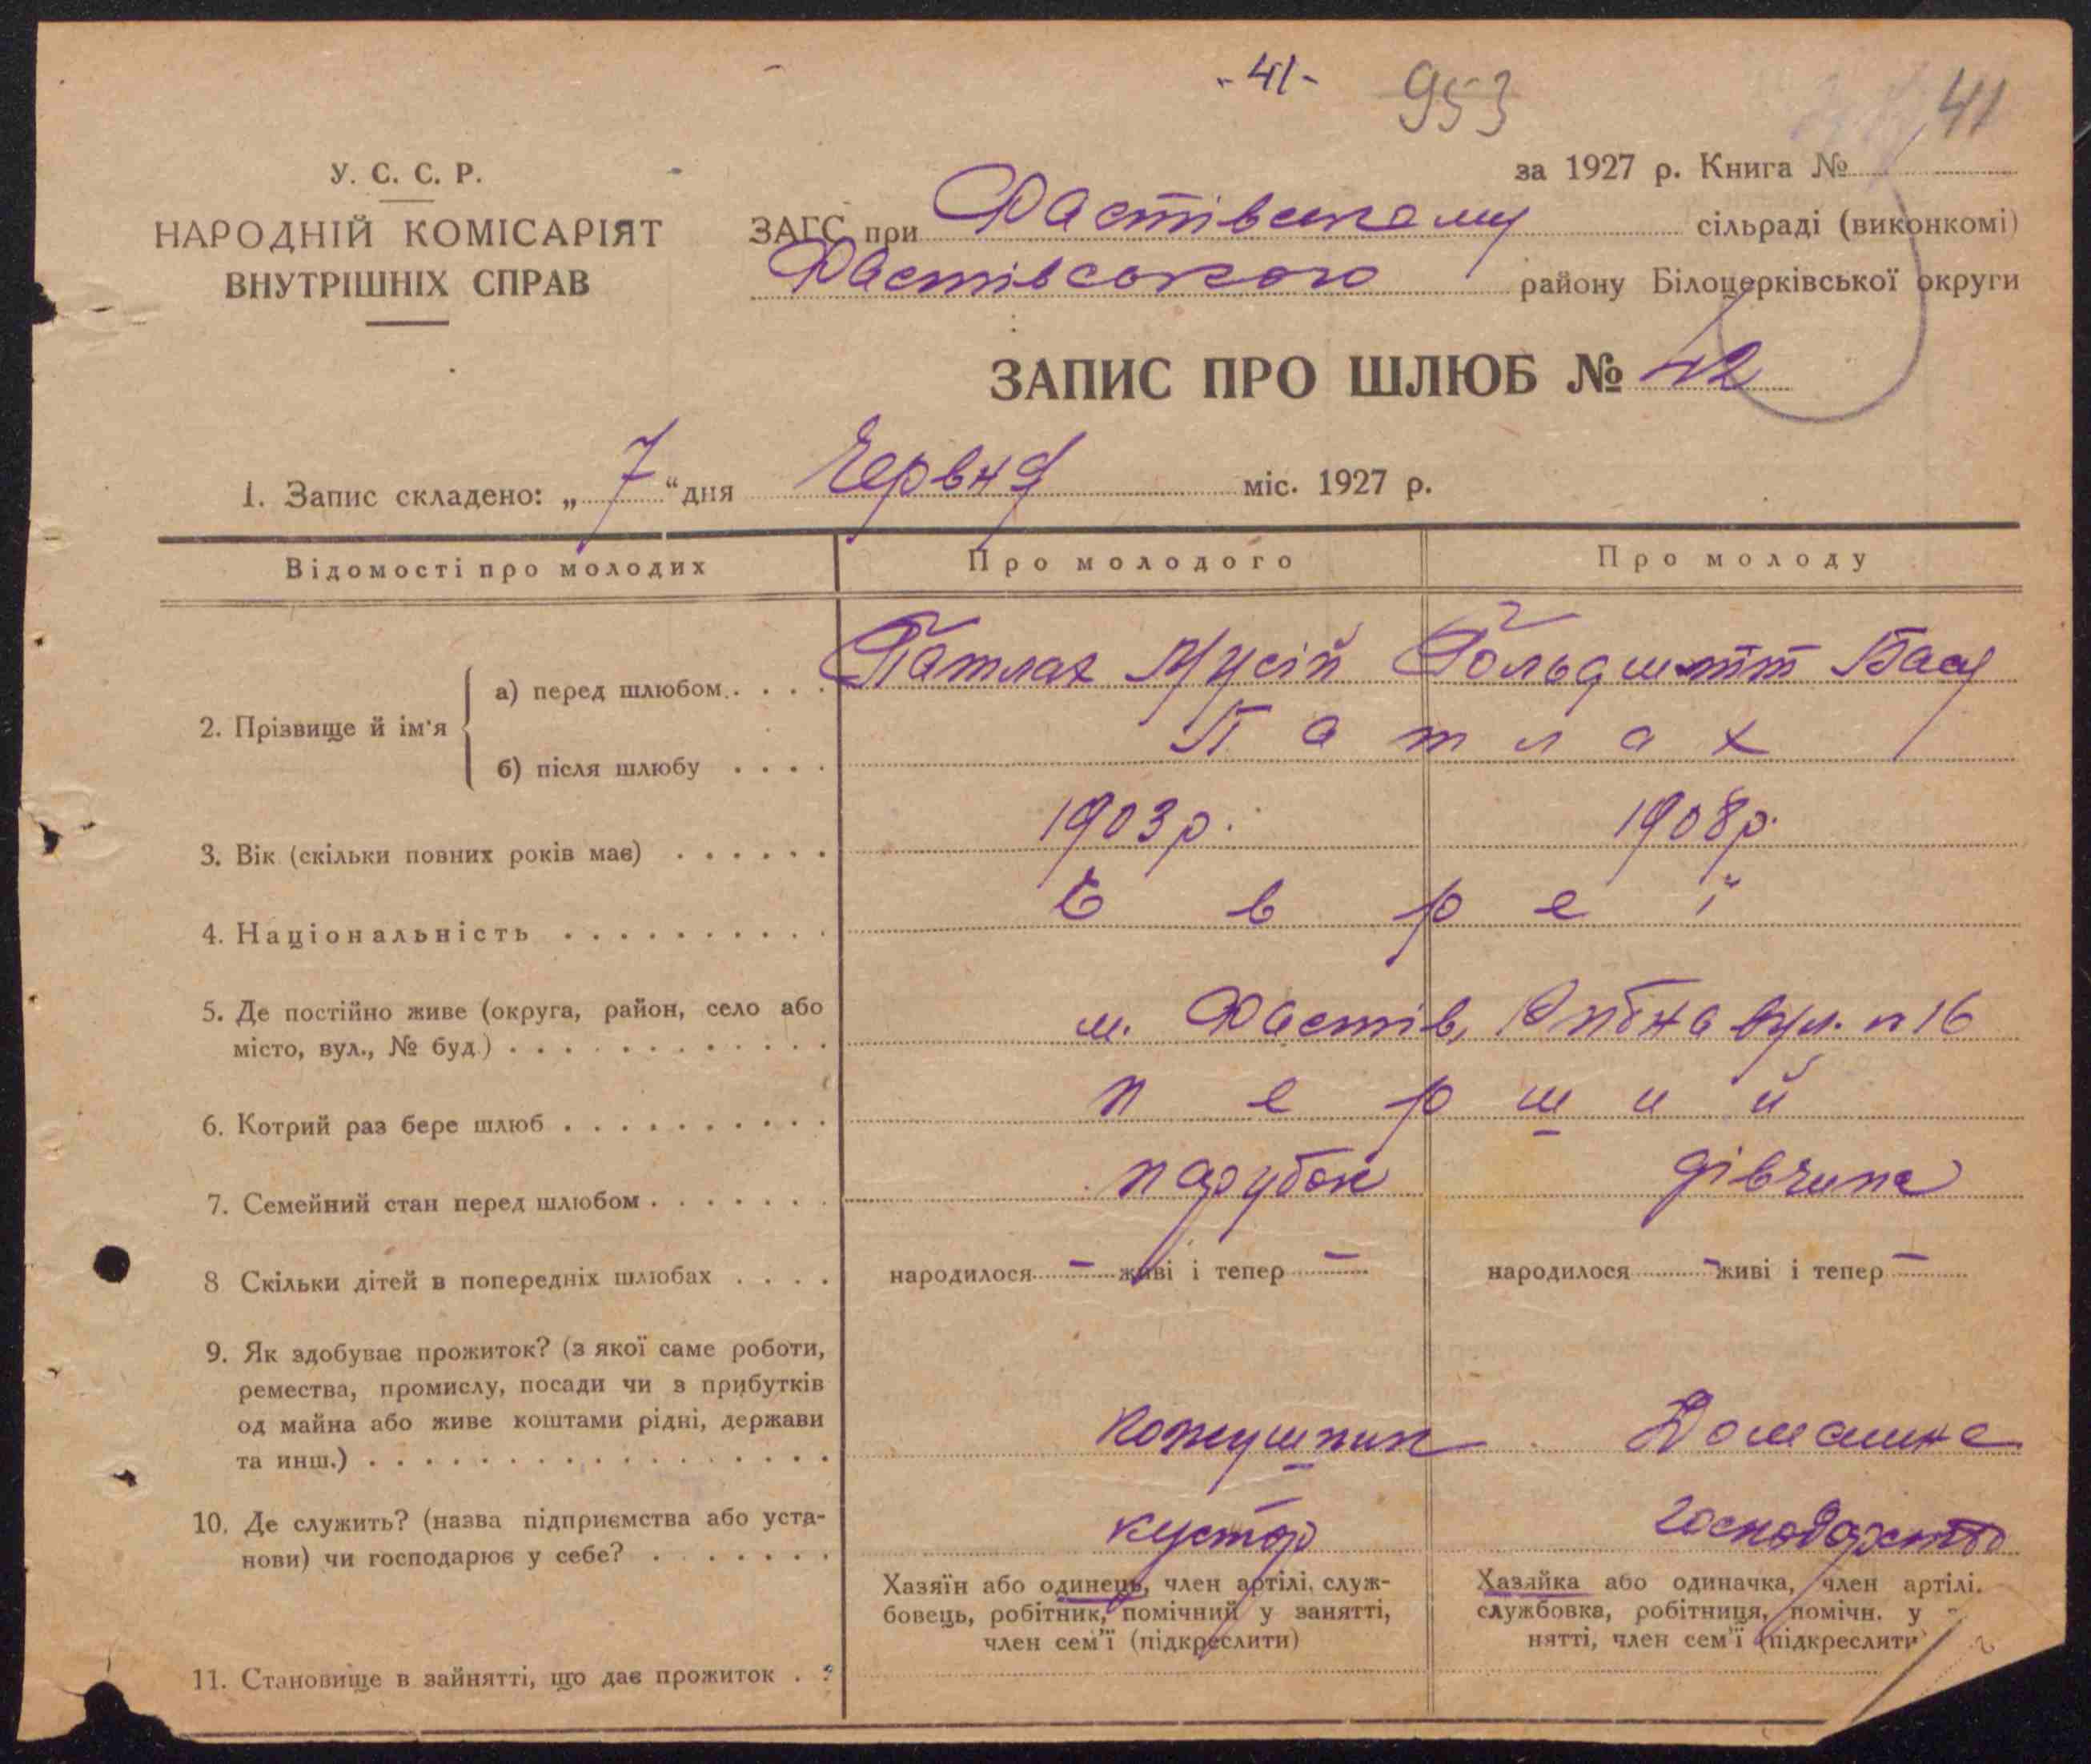 - 41 -
953
41
У. С. С. Р.
НАРОДНІЙ КОМІСАРІЯТ
ВНУТРІШНІХ СПРАВ
за 1927 р. Книга №
ЗАГС при Фастівському сільраді (виконкомі)
Фастівського району Білоцерківської округи
ЗАПИС ПРО ШЛЮБ № 42
1. Запис складено: „ 7 “ дня Червня міс. 1927 р.
Відомості про молодих
Про молодого
Про молоду
2. Прізвище й ім'я
а) перед шлюбом . . . . Патлах Мусій Гольдштт Бася
б) після шлюбу . . . . Патлах
3. Вік (скільки повних років має) . . . . . . 1903 р. 1908 р.
4. Національність . . . . . . . . . . Еврей
5. Де постійно живе (округа, район, село або
місто, вул., № буд.) . . . . . . . . . . . . м. Фастів, вул. n 16
6. Котрий раз бере шлюб . . . . . . . . . . перший
7. Семейний стан перед шлюбом . . . . . . . парубок дівчина
8 Скільки дітей в попередніх шлюбах . . . . народилося — живі і тепер — народилося — живі і тепер —
9. Як здобуває прожиток? (з якої саме роботи,
ремества, промислу, посади чи з прибутків
од майна або живе коштами рідні, держави
та инш.) . . . . . . . . . . . . . . . . . Кожушник Домашнє
10. Де служить? (назва підприємства або уста-
нови) чи господарює у себе? . . . . . . . кустар господарство
Хазяїн або одинець, член артілі, служ-
бовець, робітник, помічний у занятті,
член сем'ї (підкреслити)
Хазяйка або одиначка, член артілі,
службовка, робітниця, помічн. у
нятті, член сем'ї (підкреслити
11. Становище в зайнятті, що дає прожиток . .